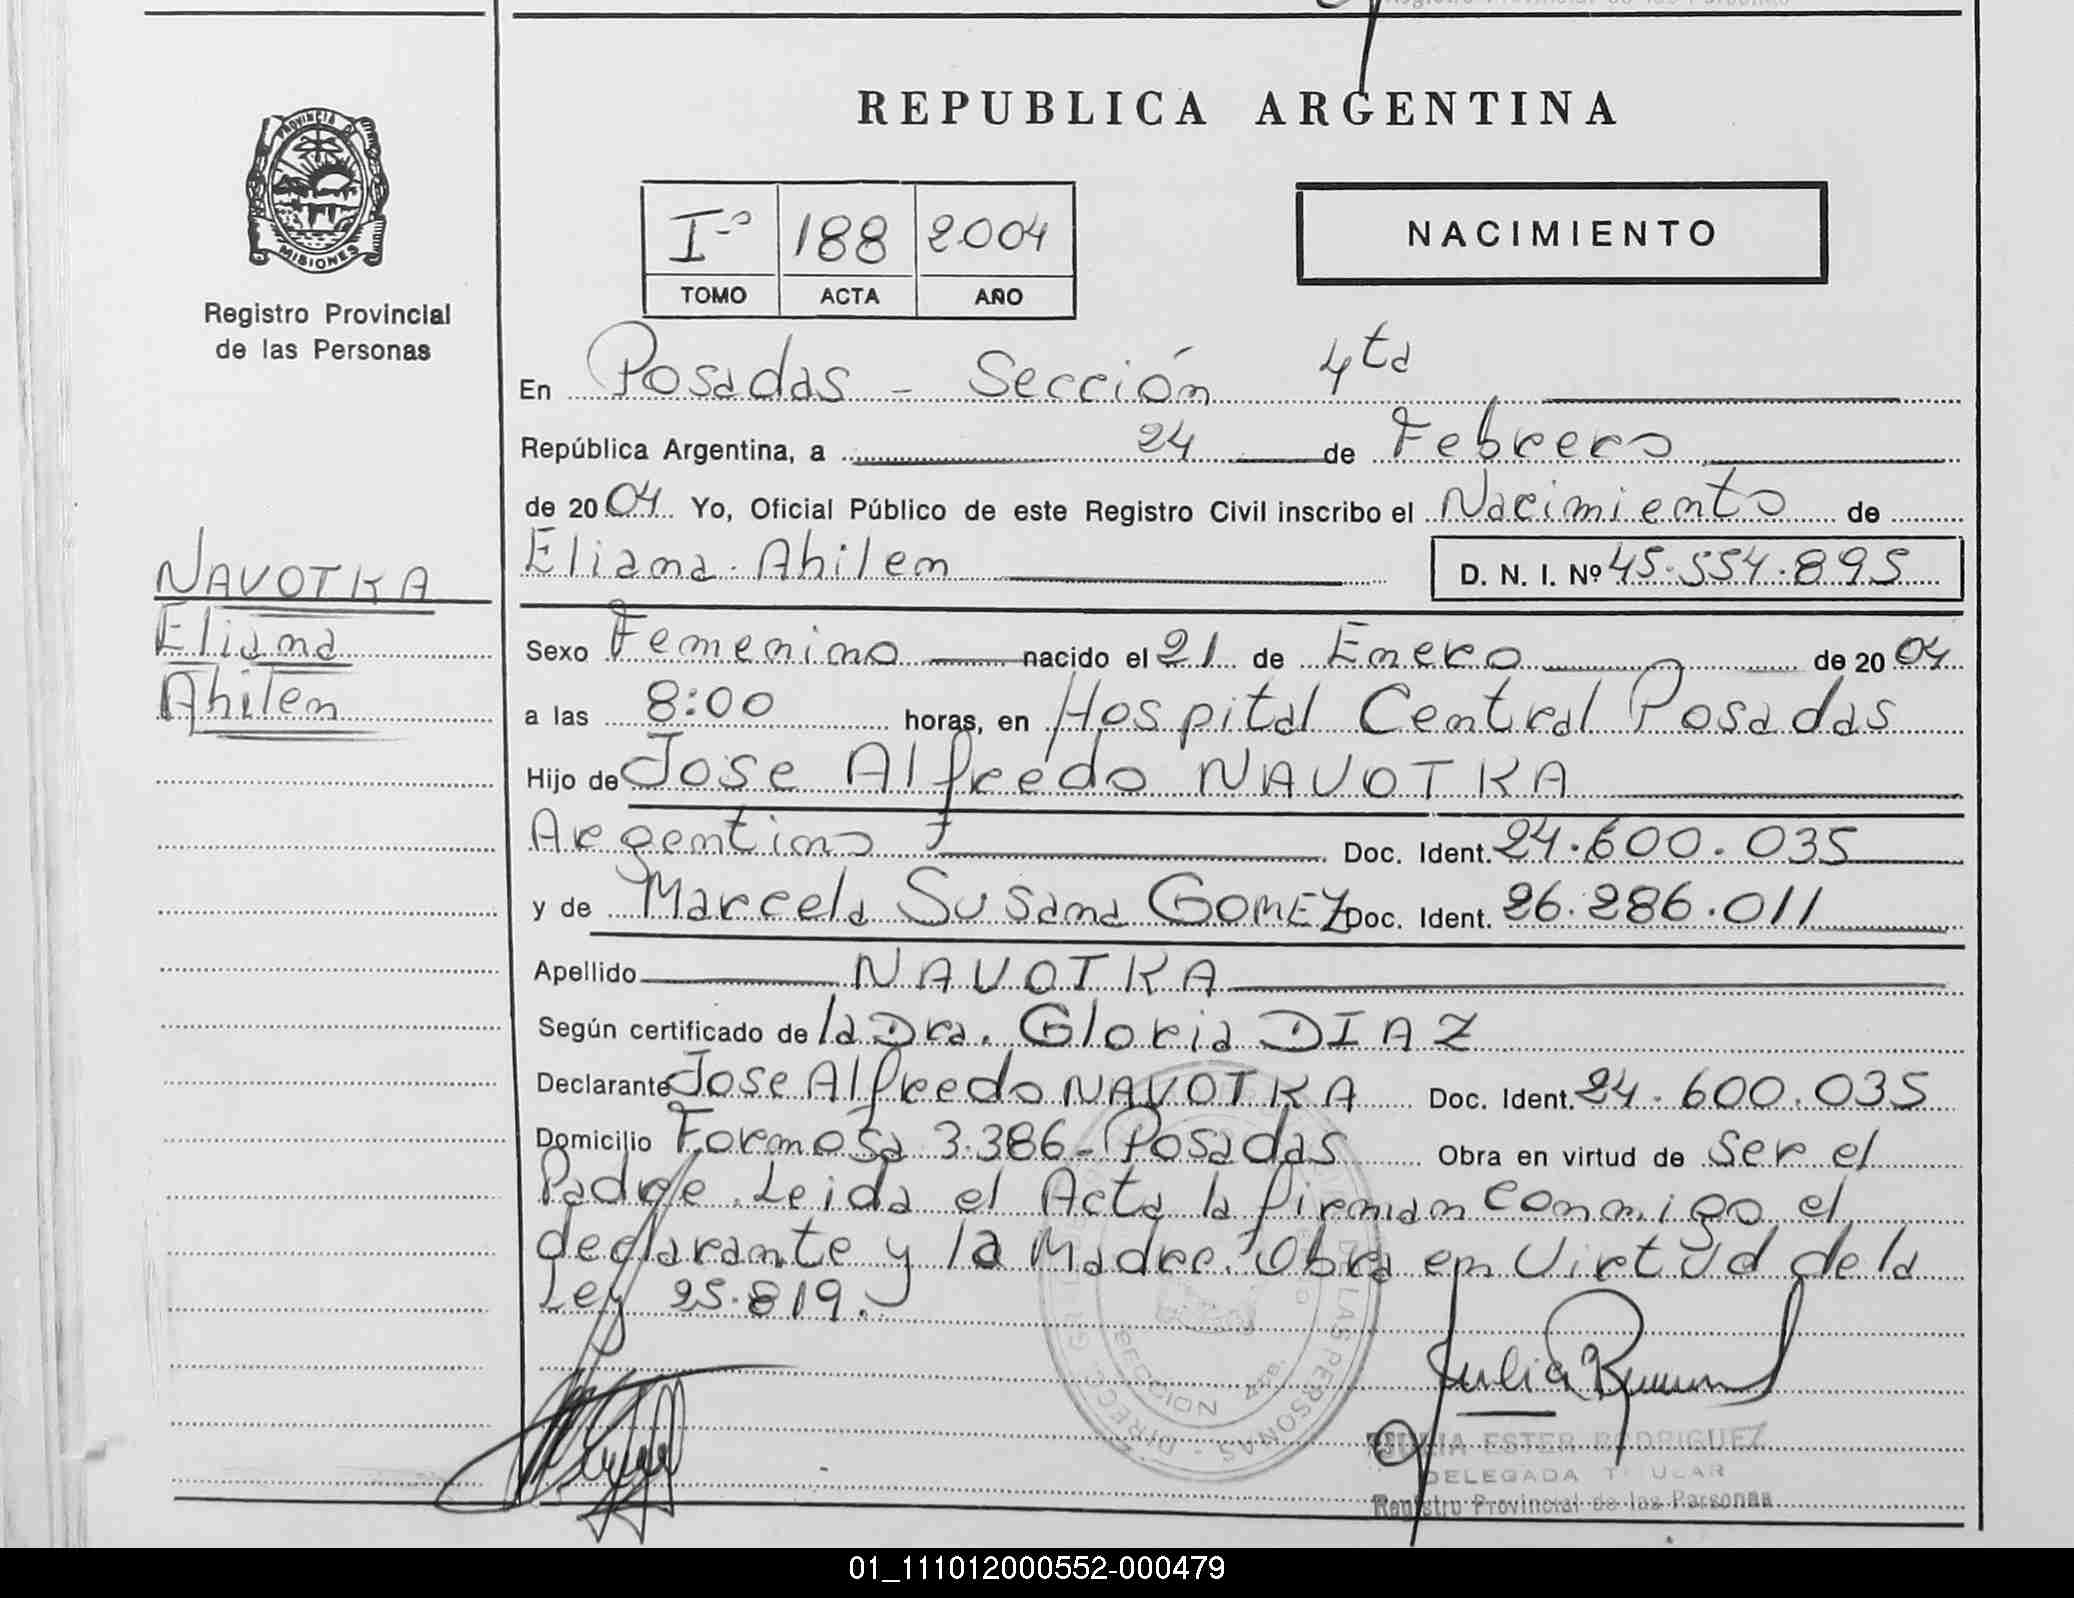 REPUBLICA ARGENTINA
PROVINCIA D
MISIONES
Registro Provincial
de las Personas
Iº 188 2004
TOMO ACTA AÑO
NACIMIENTO
En Posadas - Sección 4ta
República Argentina, a 24 de Febrero
de 2004 Yo, Oficial Público de este Registro Civil inscribo el Nacimiento de
Eliana Ahilen D. N. I. Nº 45.554.895
NAVOTKA
Eliana
Ahilen
Sexo Femenino nacido el 21 de Enero de 2004
a las 8:00 horas, en Hospital Central Posadas
Hijo de Jose Alfredo NAVOTKA
Argentino Doc. Ident. 24.600.035
y de Marcela Susana GOMEZ Doc. Ident. 26.286.011
Apellido NAVOTKA
Según certificado de la Dra. Gloria DIAZ
Declarante Jose Alfredo NAVOTKA Doc. Ident. 24.600.035
Domicilio Formosa 3.386 - Posadas Obra en virtud de Ser el
Padre. Leida el Acta la firman conmigo el
declarante y la Madre. Obra en Virtud de la
Ley 25.819.
LAS PERSONAS - DIRECC. G
JULIA ESTER RODRIGUEZ
DELEGADA TITULAR
Registro Provincial de las Personas
01_111012000552-000479